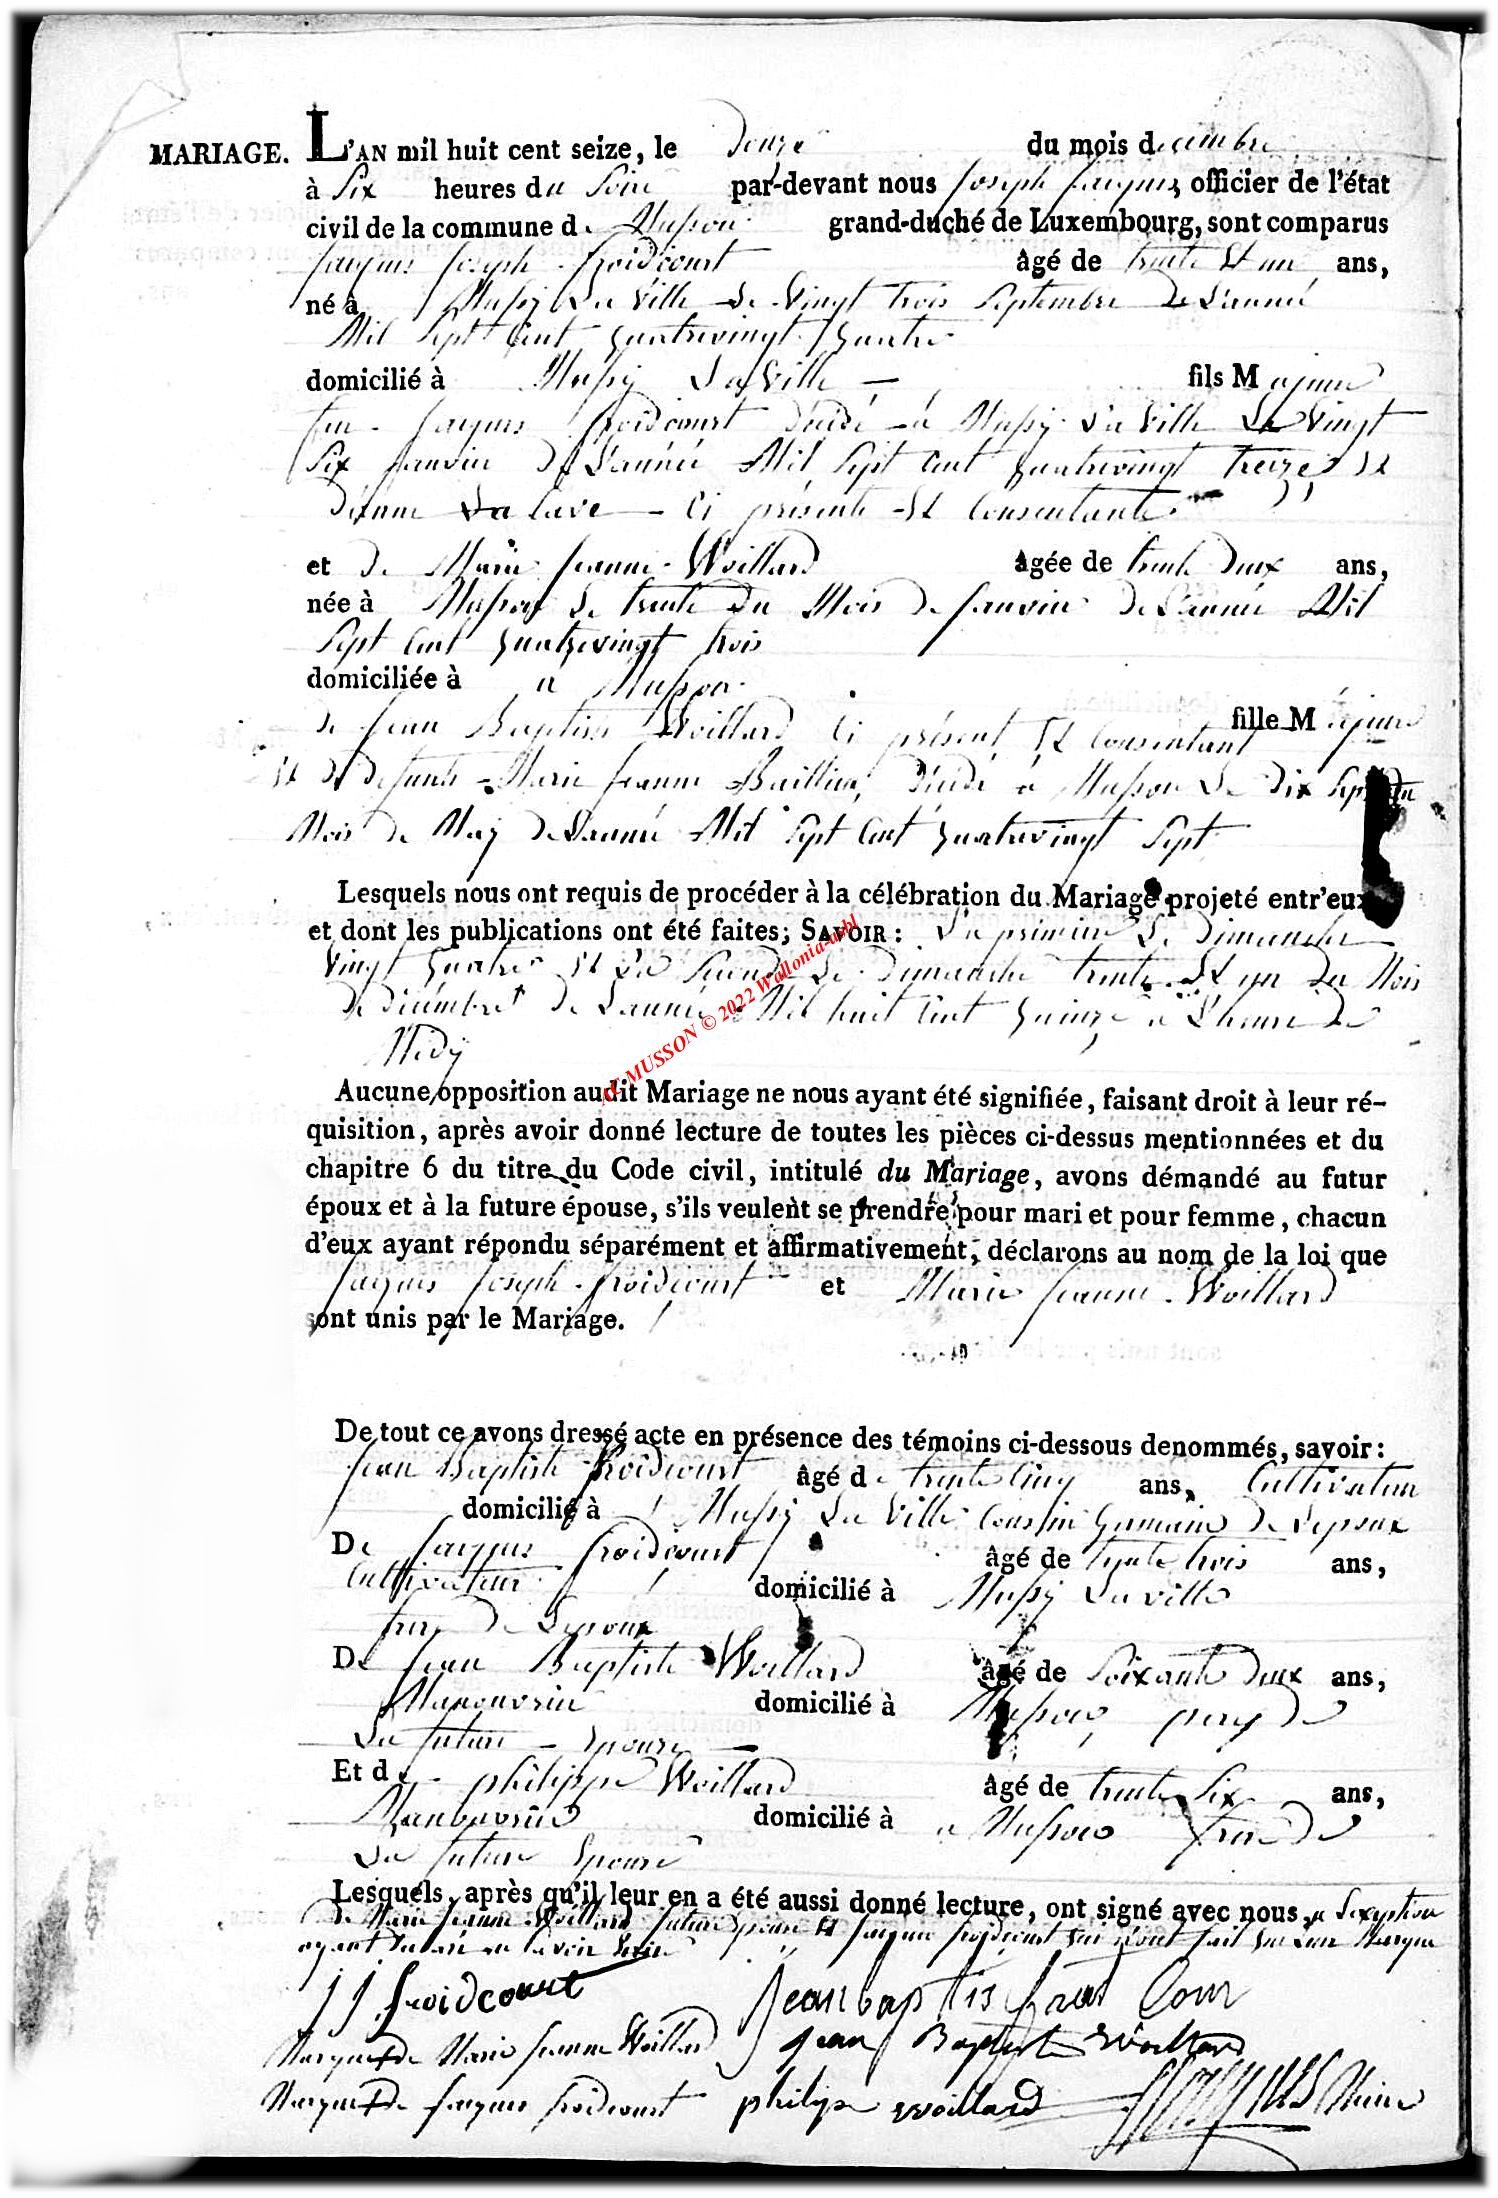 MARIAGE. L'AN mil huit cent seize, le Douze du mois decembre
à Six heures du Soir par-devant nous Joseph Jacques, officier de l'état
civil de la commune de Musson grand-duché de Luxembourg, sont comparus
Jacques Joseph froidcourt âgé de trente Et un ans,
né à Mussy La Ville Le Vingt trois Septembre De L'année
Mil Sept Cent quatrevingt quatre
domicilié à Mussy La Ville fils Majeure
feu Jacques froidcourt décédé à Mussy La Ville Le Vingt
Six Janvier De L'année Mil Sept Cent quatrevingt treize Et
La Cave Ci présente Et Consentante
et de Marie Jeanne Woillard âgée de trente Deux ans,
née à Musson Le trente Du Mois de Janvier De L'année Mil
Sept Cent quatrevingt trois
domiciliée à a Musson
fille Majeure
de Jean Baptiste Woillard Ci présent Et Consentant
Et De defunte Marie Jeanne décédé à Musson Le Dix Sept du
Mois de May De L'année Mil Sept Cent quatrevingt Sept
Lesquels nous ont requis de procéder à la célébration du Mariage projeté entr'eux
et dont les publications ont été faites; SAVOIR : La premiere Le Dimanche
Vingt quatre Et La Seconde Le Dimanche trente Et un du Mois
De décembre de L'année Mil huit Cent quinze a L'heure de
Midy
Aucune opposition audit Mariage ne nous ayant été signifiée, faisant droit à leur ré-
quisition, après avoir donné lecture de toutes les pièces ci-dessus mentionnées et du
chapitre 6 du titre du Code civil, intitulé du Mariage, avons démandé au futur
époux et à la future épouse, s'ils veulent se prendre pour mari et pour femme, chacun
d'eux ayant répondu séparément et affirmativement, déclarons au nom de la loi que
Jacques Joseph froidcourt et Marie Jeanne Woillard
sont unis par le Mariage.
De tout ce avons dressé acte en présence des témoins ci-dessous denommés, savoir :
Jean Baptiste froidcourt âgé de trente Cinq ans, Cultivateur
domicilié à Mussy La Ville Cousin Germain De L'epoux
De Jacques froidcourt âgé de trente trois ans,
Cultivateur domicilié à Mussy La ville
frere De L'epoux
De Jean Baptiste Woillard âgé de Soixante Deux ans,
Manouvrier domicilié à Musson pere De
La future Epouse
Et de philippe Woillard âgé de trente Six ans,
Manouvrier domicilié à a Musson frere De
La future Epouse
Lesquels, après qu'il leur en a été aussi donné lecture, ont signé avec nous, a L'exeption
de Marie Jeanne Woillard future Epouse Et Jacques froidcourt qui n'ont fait que Leur Marque
ayant Savoir Ecrire
J J froidcourt Jean baptis froit Cour
Marque de Marie Jeanne Woillard Jean Baptiste Woillard
Marque de Jacques froidcourt philipe woillard Jacques Maire
AC MUSSON © 2022 Wallonia-asbl